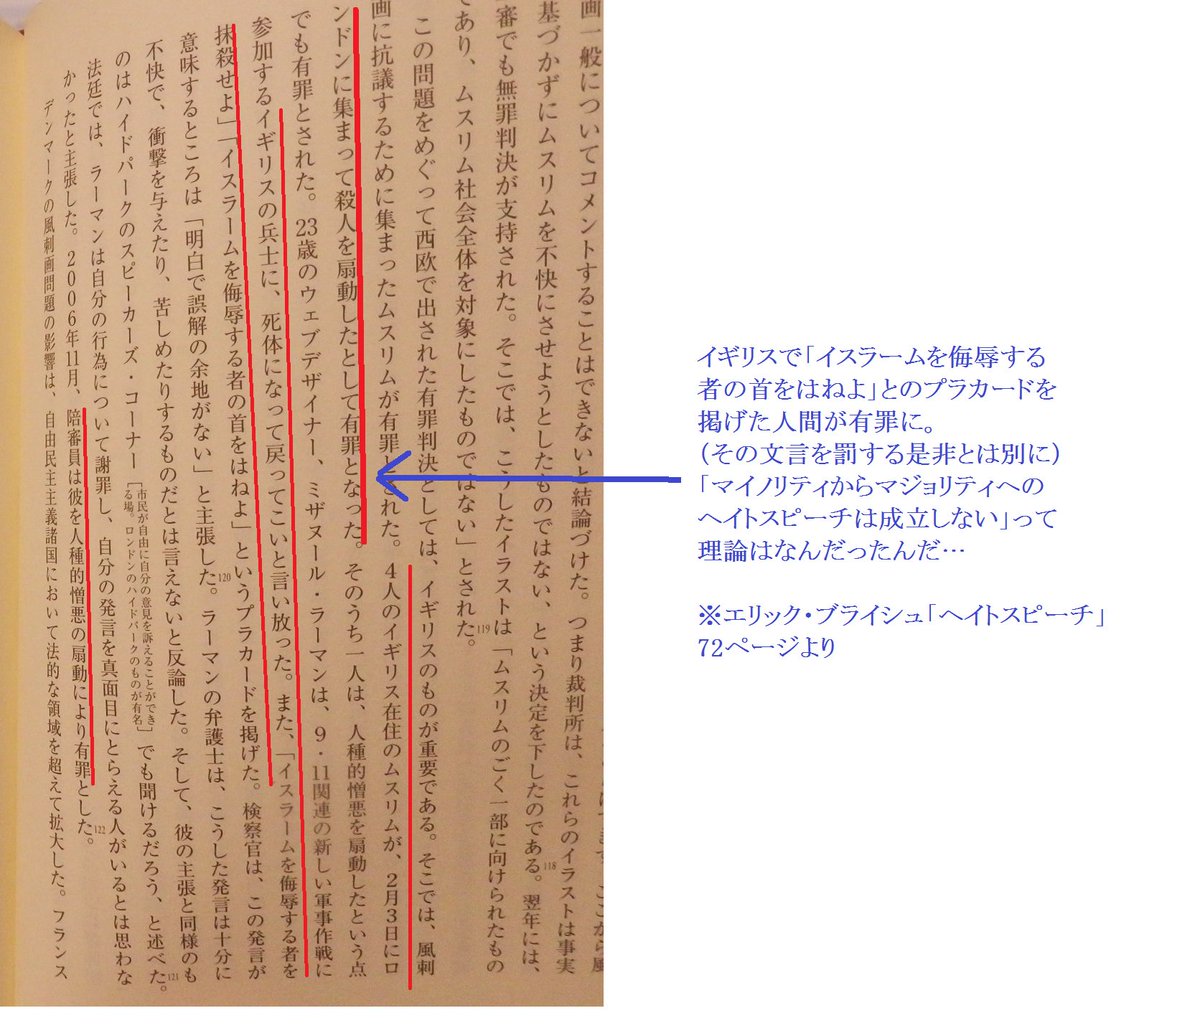 画一般についてコメントすることはできないと結論づけた。つまり裁判所は、これらのイラストは事実
基づかずにムスリムを不快にさせようとしたものではない、という決定を下したのである。118 翌年には、
審でも無罪判決が支持された。そこでは、こうしたイラストは「ムスリムのごく一部に向けられたもの
であり、ムスリム社会全体を対象にしたものではない」とされた。119
この問題をめぐって西欧で出された有罪判決としては、イギリスのものが重要である。そこでは、風刺
画に抗議するために集まったムスリムが有罪とされた。4人のイギリス在住のムスリムが、2月3日にロ
ンドンに集まって殺人を扇動したとして有罪となった。そのうち一人は、人種的憎悪を扇動したという点
でも有罪とされた。23歳のウェブデザイナー、ミザヌール・ラーマンは、9・11関連の新しい軍事作戦に
参加するイギリスの兵士に、死体になって戻ってこいと言い放った。また、「イスラームを侮辱する者を
抹殺せよ」「イスラームを侮辱する者の首をはねよ」というプラカードを掲げた。検察官は、この発言が
意味するところは「明白で誤解の余地がない」と主張した。120 ラーマンの弁護士は、こうした発言は十分に
不快で、衝撃を与えたり、苦しめたりするものだとは言えないと反論した。そして、彼の主張と同様のも
のはハイドパークのスピーカーズ・コーナー［市民が自由に自分の意見を訴えることができる場。ロンドンのハイドパークのものが有名］でも聞けるだろう、と述べた。121
法廷では、ラーマンは自分の行為について謝罪し、自分の発言を真面目にとらえる人がいるとは思わな
かったと主張した。2006年11月、陪審員は彼を人種的憎悪の扇動により有罪とした。122
デンマークの風刺画問題の影響は、自由民主主義諸国において法的な領域を超えて拡大した。フランス
イギリスで「イスラームを侮辱する
者の首をはねよ」とのプラカードを
掲げた人間が有罪に。
（その文言を罰する是非とは別に）
「マイノリティからマジョリティへの
ヘイトスピーチは成立しない」って
理論はなんだったんだ…
※エリック・ブライシュ「ヘイトスピーチ」
72ページより